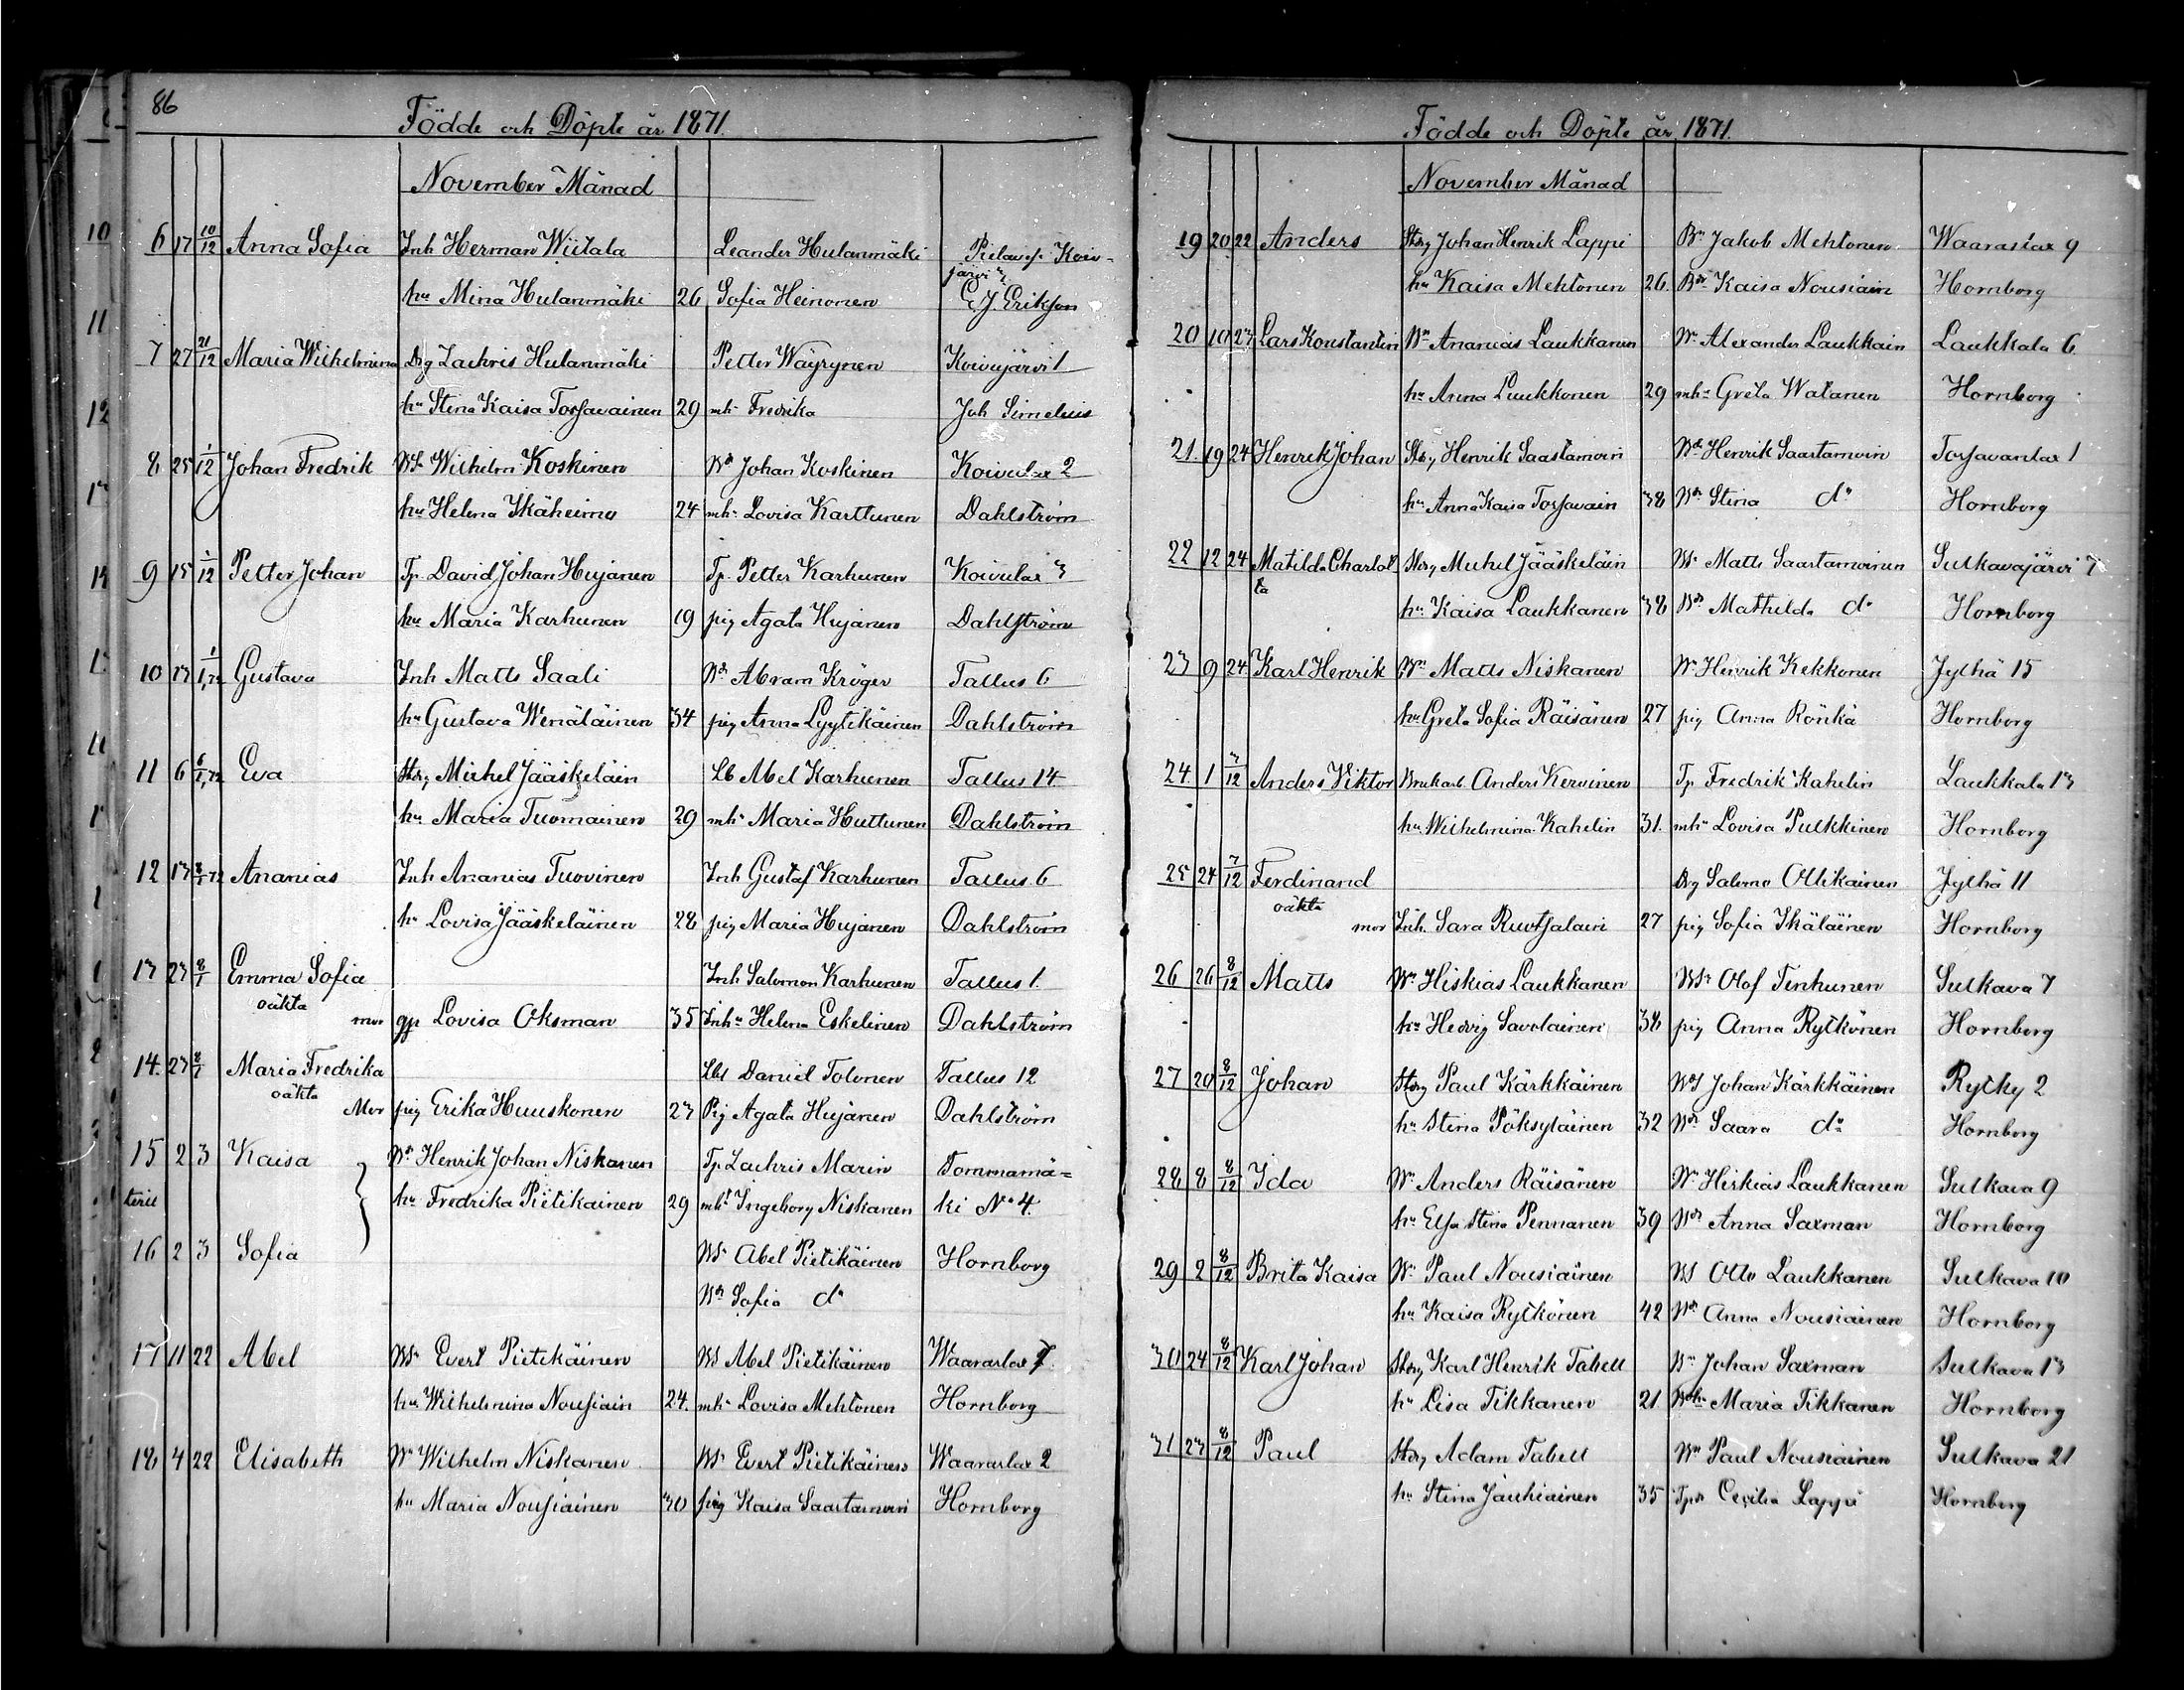 86
Födde och Döpte år 1871.
November Månad
6 17 10/12 Anna Sofia Inh Herman Wiitala Leander Hulanmäki Pielaves. Koiv-
järvi
hu Mina Hulanmäki 26 Sofia Heinonen C. J. Erikson
7 27 21/12 Maria Wilhelmina Drg Zachris Hulanmäki Petter Wäyrynen Koivujärvi 1
hu Stina Kaisa Torsavainen 29 mh Fredrika Joh Simelius
8 25 1/12 Johan Fredrik Ws Wilhelm Koskinen Ws Johan Koskinen Koivulax 2
hu Helena Ikäheimo 24 mh Lovisa Karttunen Dahlström
9 15 1/12 Petter Johan Tp. David Johan Hujanen Tp. Petter Karhunen Koivulax 3
hu Maria Karhunen 19 pig Agata Hujanen Dahlström
10 13 1/1,72 Gustava Inh Matts Saali Ws Abram Kröger Tallus 6
hu Gustava Wenäläinen 34 pig Anna Lyytikäinen Dahlström
11 6 6/1,72 Eva Storp Michel Jääskeläin Lb Abel Karhunen Tallus 14
hu Maria Tuomainen 29 mh Maria Huttunen Dahlström
12 13 8/1 72 Ananias Inh Ananias Tuovinen Inh Gustaf Karhunen Tallus 6
hu Lovisa Jääskeläinen 28 pig Maria Hujanen Dahlström
13 23 8/1 Emma Sofia Inh Salomon Karhunen Tallus 1.
oäkta mor gp Lovisa Oksman 35 Inhu Helena Eskelinen Dahlström
14. 23 8/1 Maria Fredrika Lbs Daniel Tolonen Tallus 12
oäkta Mor pig Erika Huuskonen 23 Pig Agata Hujanen Dahlström
15 2 3 Kaisa Wn Henrik Johan Niskanen Tp. Zachris Marin Tommamä=
hu Fredrika Pietikäinen 29 mh Ingeborg Niskanen ki No 4.
16 2 3 Sofia Ws Abel Pietikäinen Hornborg
Wd Sofia do
17 11 22 Abel Ws Evert Pietikäinen Ws Abel Pietikäinen Waaraslax 7
hu Wilhelmina Nousiain 24. mh Lovisa Mehtonen Hornborg
18 4 22 Elisabeth Wn Wilhelm Niskanen Ws Evert Pietikäinen Waaraslax 2
hu Maria Nousiainen 30 pig Kaisa Saastamoin Hornborg
Födde och Döpte år 1871.
November Månad
19 20 22 Anders Storp Johan Henrik Lappi Bn Jakob Mehtonen Waaraslax 9
hu Kaisa Mehtonen 26. Kaisa Nousiain Hornborg
20 10 23 Lars Konstantin Wn Ananias Laukkanen Wn Alexander Laukkain Laukkala 6
hu Anna Luukkonen 29 mh Greta Watanen Hornborg
21. 19 24 Henrik Johan Storp Henrik Saastamoin Ws Henrik Saastamoin Torsavanlax 1
hu Anna Kaisa Torsavain 38 Wd Stina do Hornborg
22 12 24 Matilda Charlot Storp Michel Jääskeläin Ws Matts Saastamoinen Sulkavajärvi 7
ta
hu Kaisa Laukkanen 38 Wd Mathilda do Hornborg
23 9 24 Karl Henrik Wn Matts Niskanen Wn Henrik Kekkonen Jylhä 15
hu Greta Sofia Räisänen 27 pig Anna Rönkä Hornborg
24. 1 3/12 Anders Viktor Brukarb. Anders Kervinen Tp Fredrik Kahelin Laukkala 13
hu Wilhelmina Kahelin 31. mh Lovisa Pulkkinen Hornborg
25 24 7/12 Ferdinand Drg Salomo Ollikainen Jylhä 11
oäkta mor Inh. Sara Ruotsalain 27 pig Sofia Ikäläinen Hornborg
26 26 8/12 Matts Wn Hiskias Laukkanen Ws Olof Tenhunen Sulkava 7
hu Hedvig Savolainen 38 pig Anna Rytkönen Hornborg
27 20 8/12 Johan Storp Paul Kärkkäinen Ws Johan Kärkkäinen Rytky 2
hu Stina Pöksyläinen 32 Wd Saara do Hornborg
28 8 8/12 Ida Wn Anders Räisänen Wn Hiskias Laukkanen Sulkava 9
hu Elsa Stina Pennanen 39 Wd Anna Saxman Hornborg
29 2 8/12 Brita Kaisa Wn Paul Nousiainen Ws Otto Laukkanen Sulkava 10
hu Kaisa Rytkönen 42 Wd Anna Nousiainen Hornborg
30 24 8/12 Karl Johan Storp Karl Henrik Tabell Bn Johan Saxman Sulkava 13
hu Lisa Tikkanen 21 Maria Tikkanen Hornborg
31 23 8/12 Paul Storp Adam Tabell Wn Paul Nousiainen Sulkava 21
hu Stina Jauhiainen 35 Tpd Cecilia Lappi Hornborg